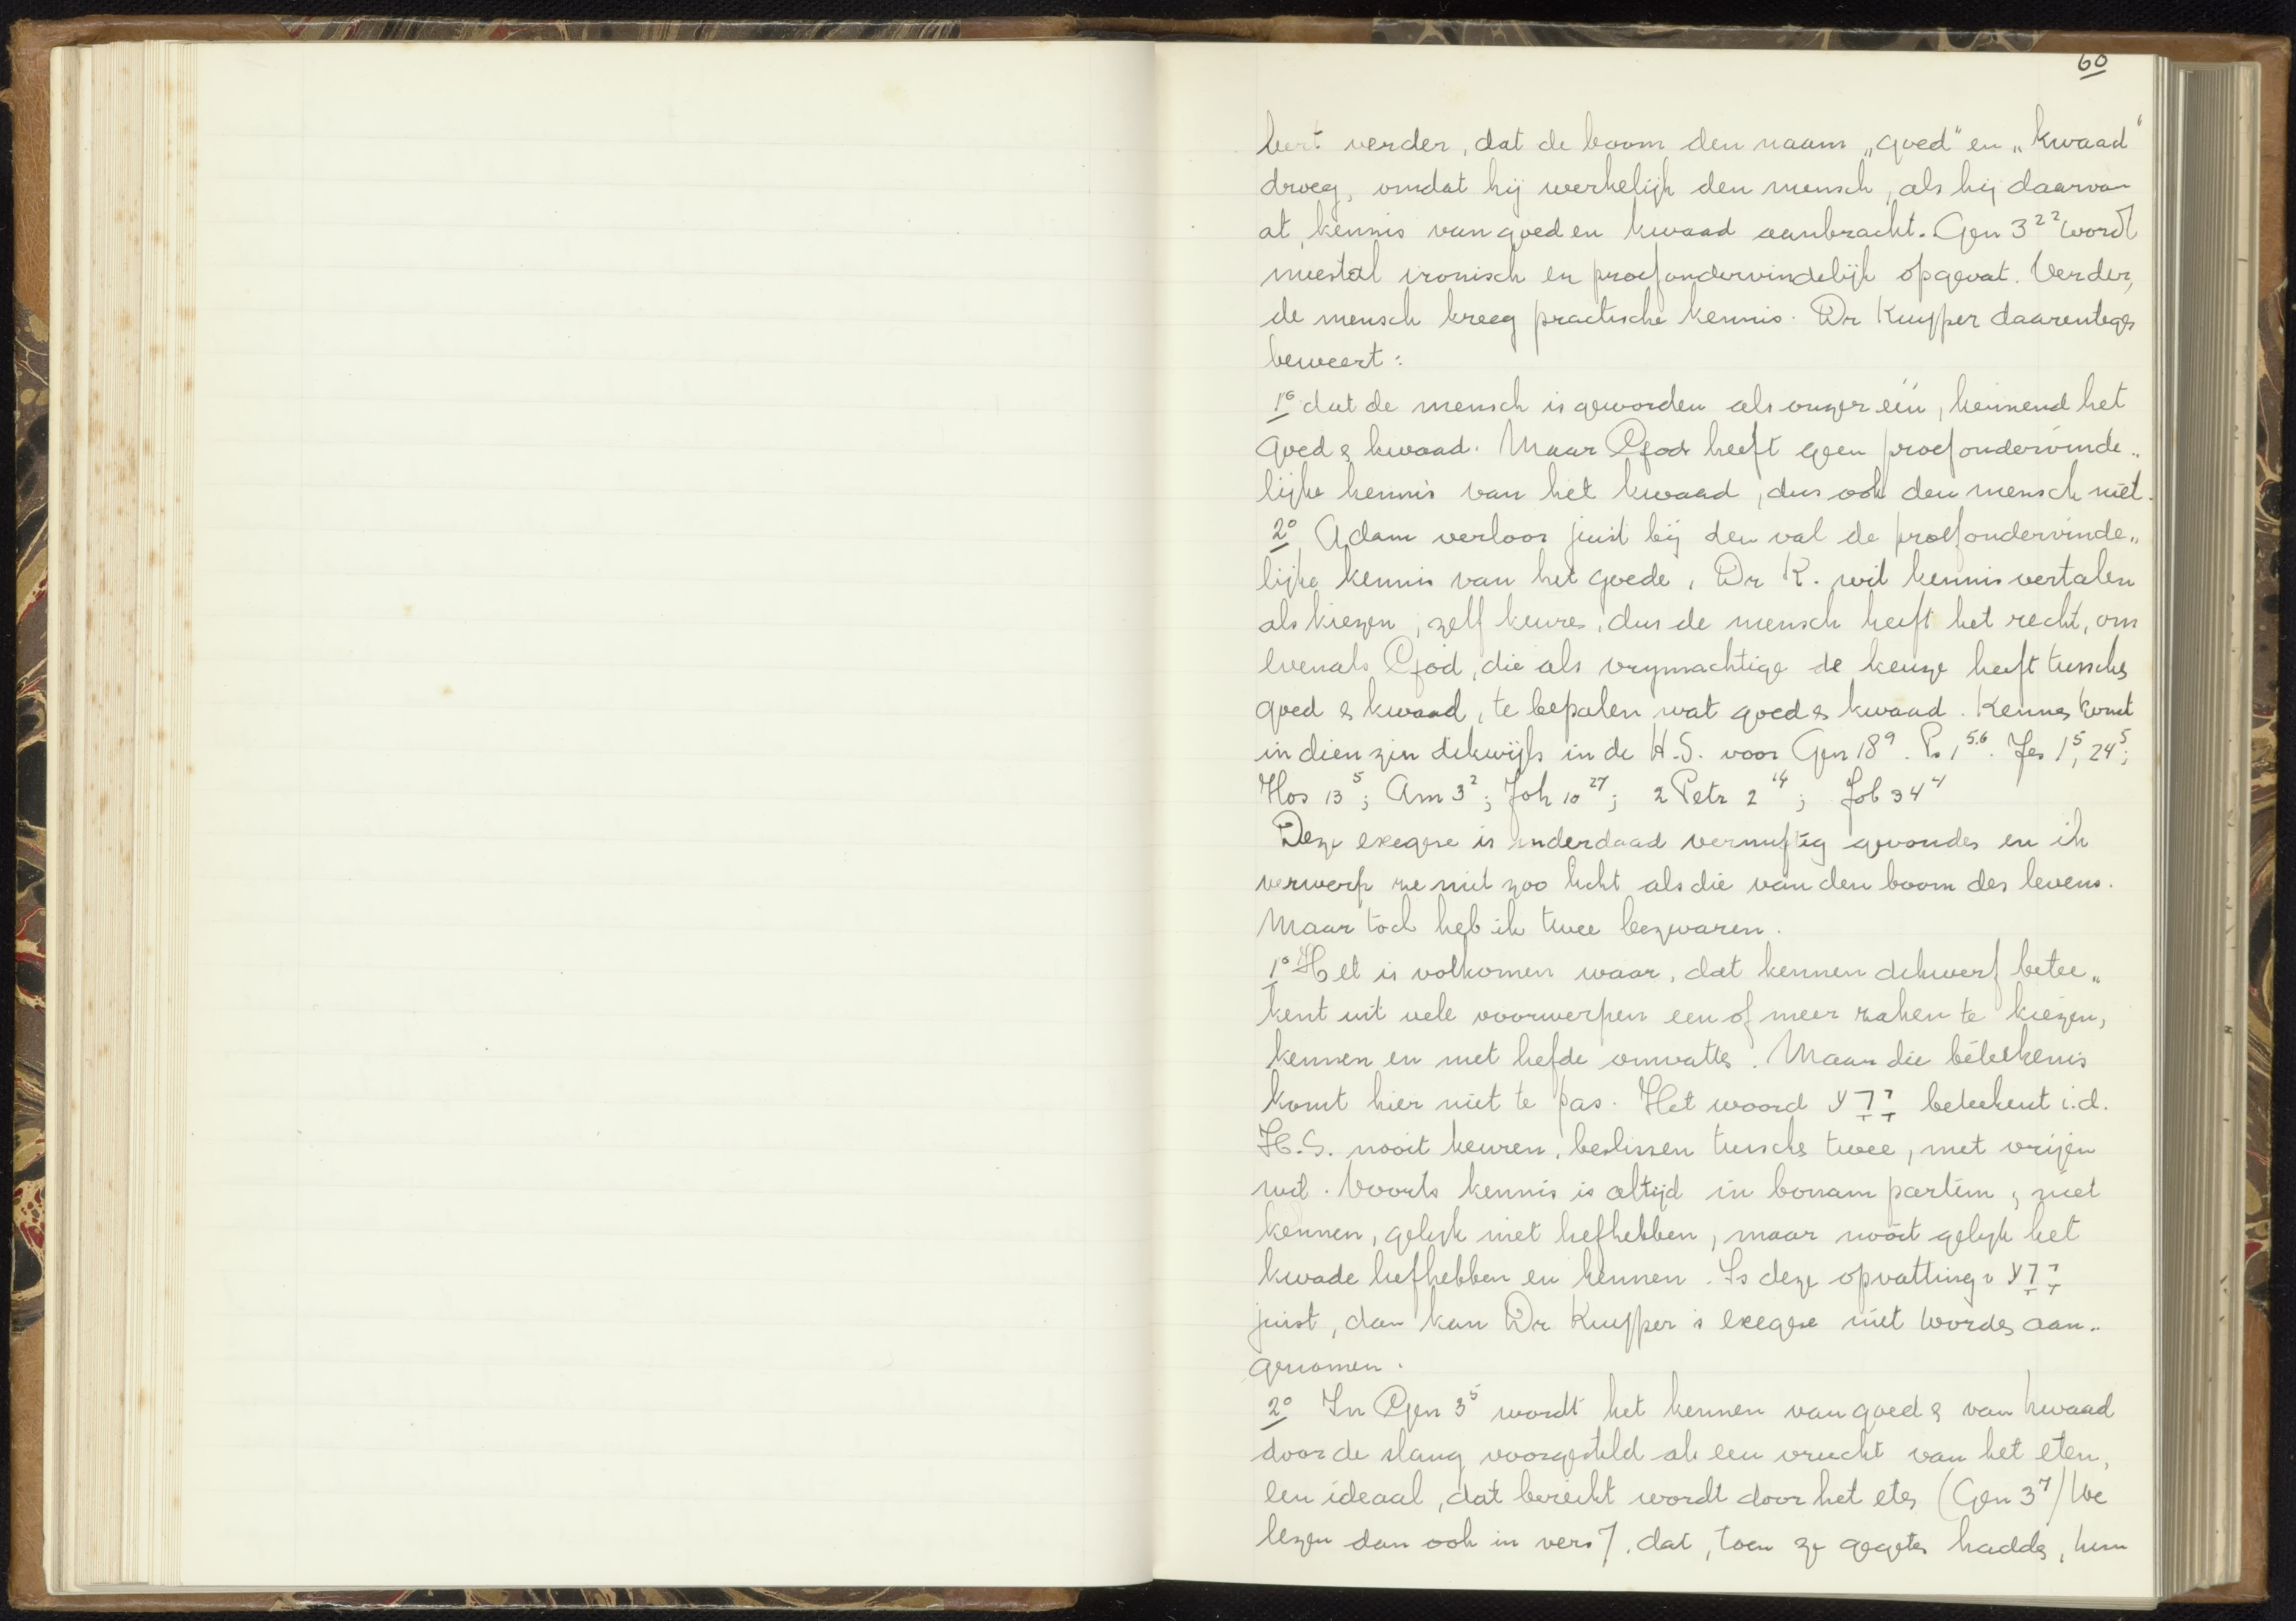 60
bert verder, dat de boom den naam „goed" en „kwaad"
droeg, omdat hij werkelijk den mensch, als hij daarvan
at, kennis van goed en kwaad aanbracht. Gen 3²² wordt
meestal ironisch en proefondervindelijk opgevat. Verder,
de mensch kreeg practische kennis. Dr Kuyper daarentegen
beweert:
1° dat de mensch is geworden als onzer één, kennend het
goed & kwaad. Maar God heeft geen proefondervinde„
lijke kennis van het kwaad, dus ook den mensch niet.
2° Adam verloor juist bij den val de proefondervinde„
lijke kennis van het goede. Dr K. wil kennis vertalen
als kiezen, zelf keuren, dus de mensch heeft het recht, om
evenals God, die als vrijmachtige de keuze heeft tusschen
goed & kwaad, te bepalen wat goed & kwaad. Kennen komt
in dien zin dikwijls in de H.S. voor Gen 18⁹. Ps 1⁵·⁶. Jes 1⁵, 24⁵;
Hos 13⁵; Am 3²; Joh 10²⁷; 2 Petr 2¹⁴; Job 34⁴
Deze exegese is inderdaad vernuftig gevonden en ik
verwerp ze niet zoo licht als die van den boom des levens.
Maar toch heb ik twee bezwaren.
1° Het is volkomen waar, dat kennen dikwerf betee„
kent uit vele voorwerpen een of meer zaken te kiezen,
kennen en met liefde omvatten. Maar die beteekenis
komt hier niet te pas. Het woord יָדַע beteekent i.d.
H.S. nooit keuren, beslissen tusschen twee, met vrijen
wil. Voorts kennis is altijd in bonam partem, niet
kennen, gelijk niet liefhebben, maar nooit gelijk het
kwade liefhebben en kennen. Is deze opvatting v יָדַע
juist, dan kan Dr Kuyper's exegese niet worden aan„
genomen.
2° In Gen 3⁵ wordt het kennen van goed & van kwaad
door de slang voorgesteld als een vrucht van het eten,
een ideaal, dat bereikt wordt door het eten (Gen 3⁷) We
lezen dan ook in vers 7, dat, toen ze gegeten hadden, hun